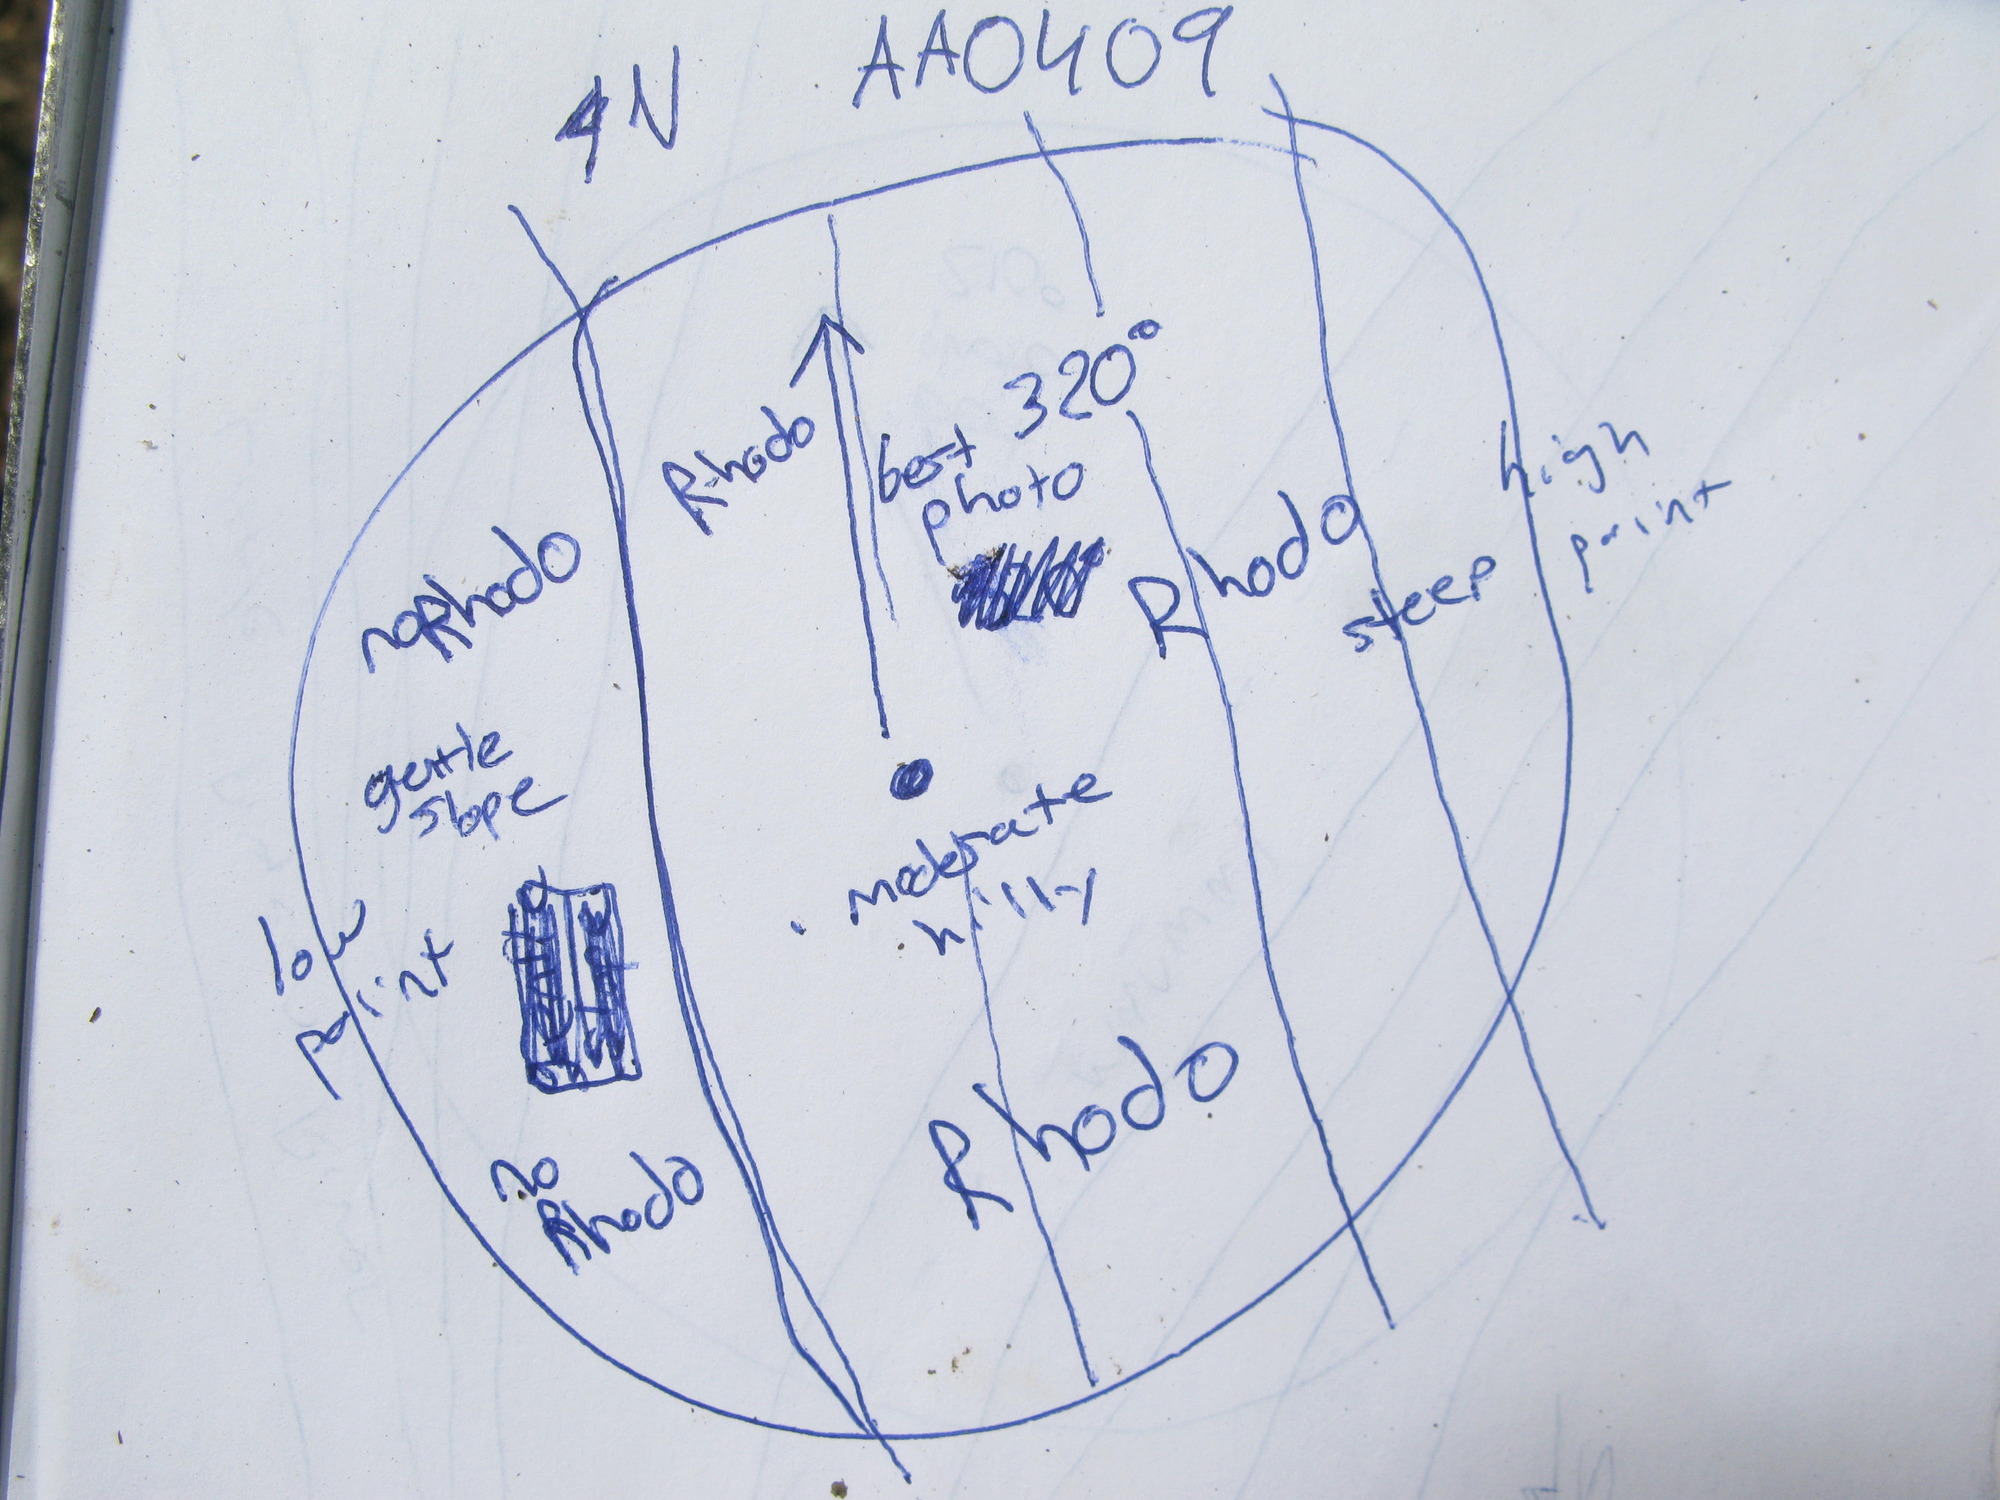 N AA0409
320°
Rhodo
best
photo
high
point
Rhodo
steep
noRhodo
gentle
slope
moderate
hilly
low
point
Rhodo
no
Rhodo